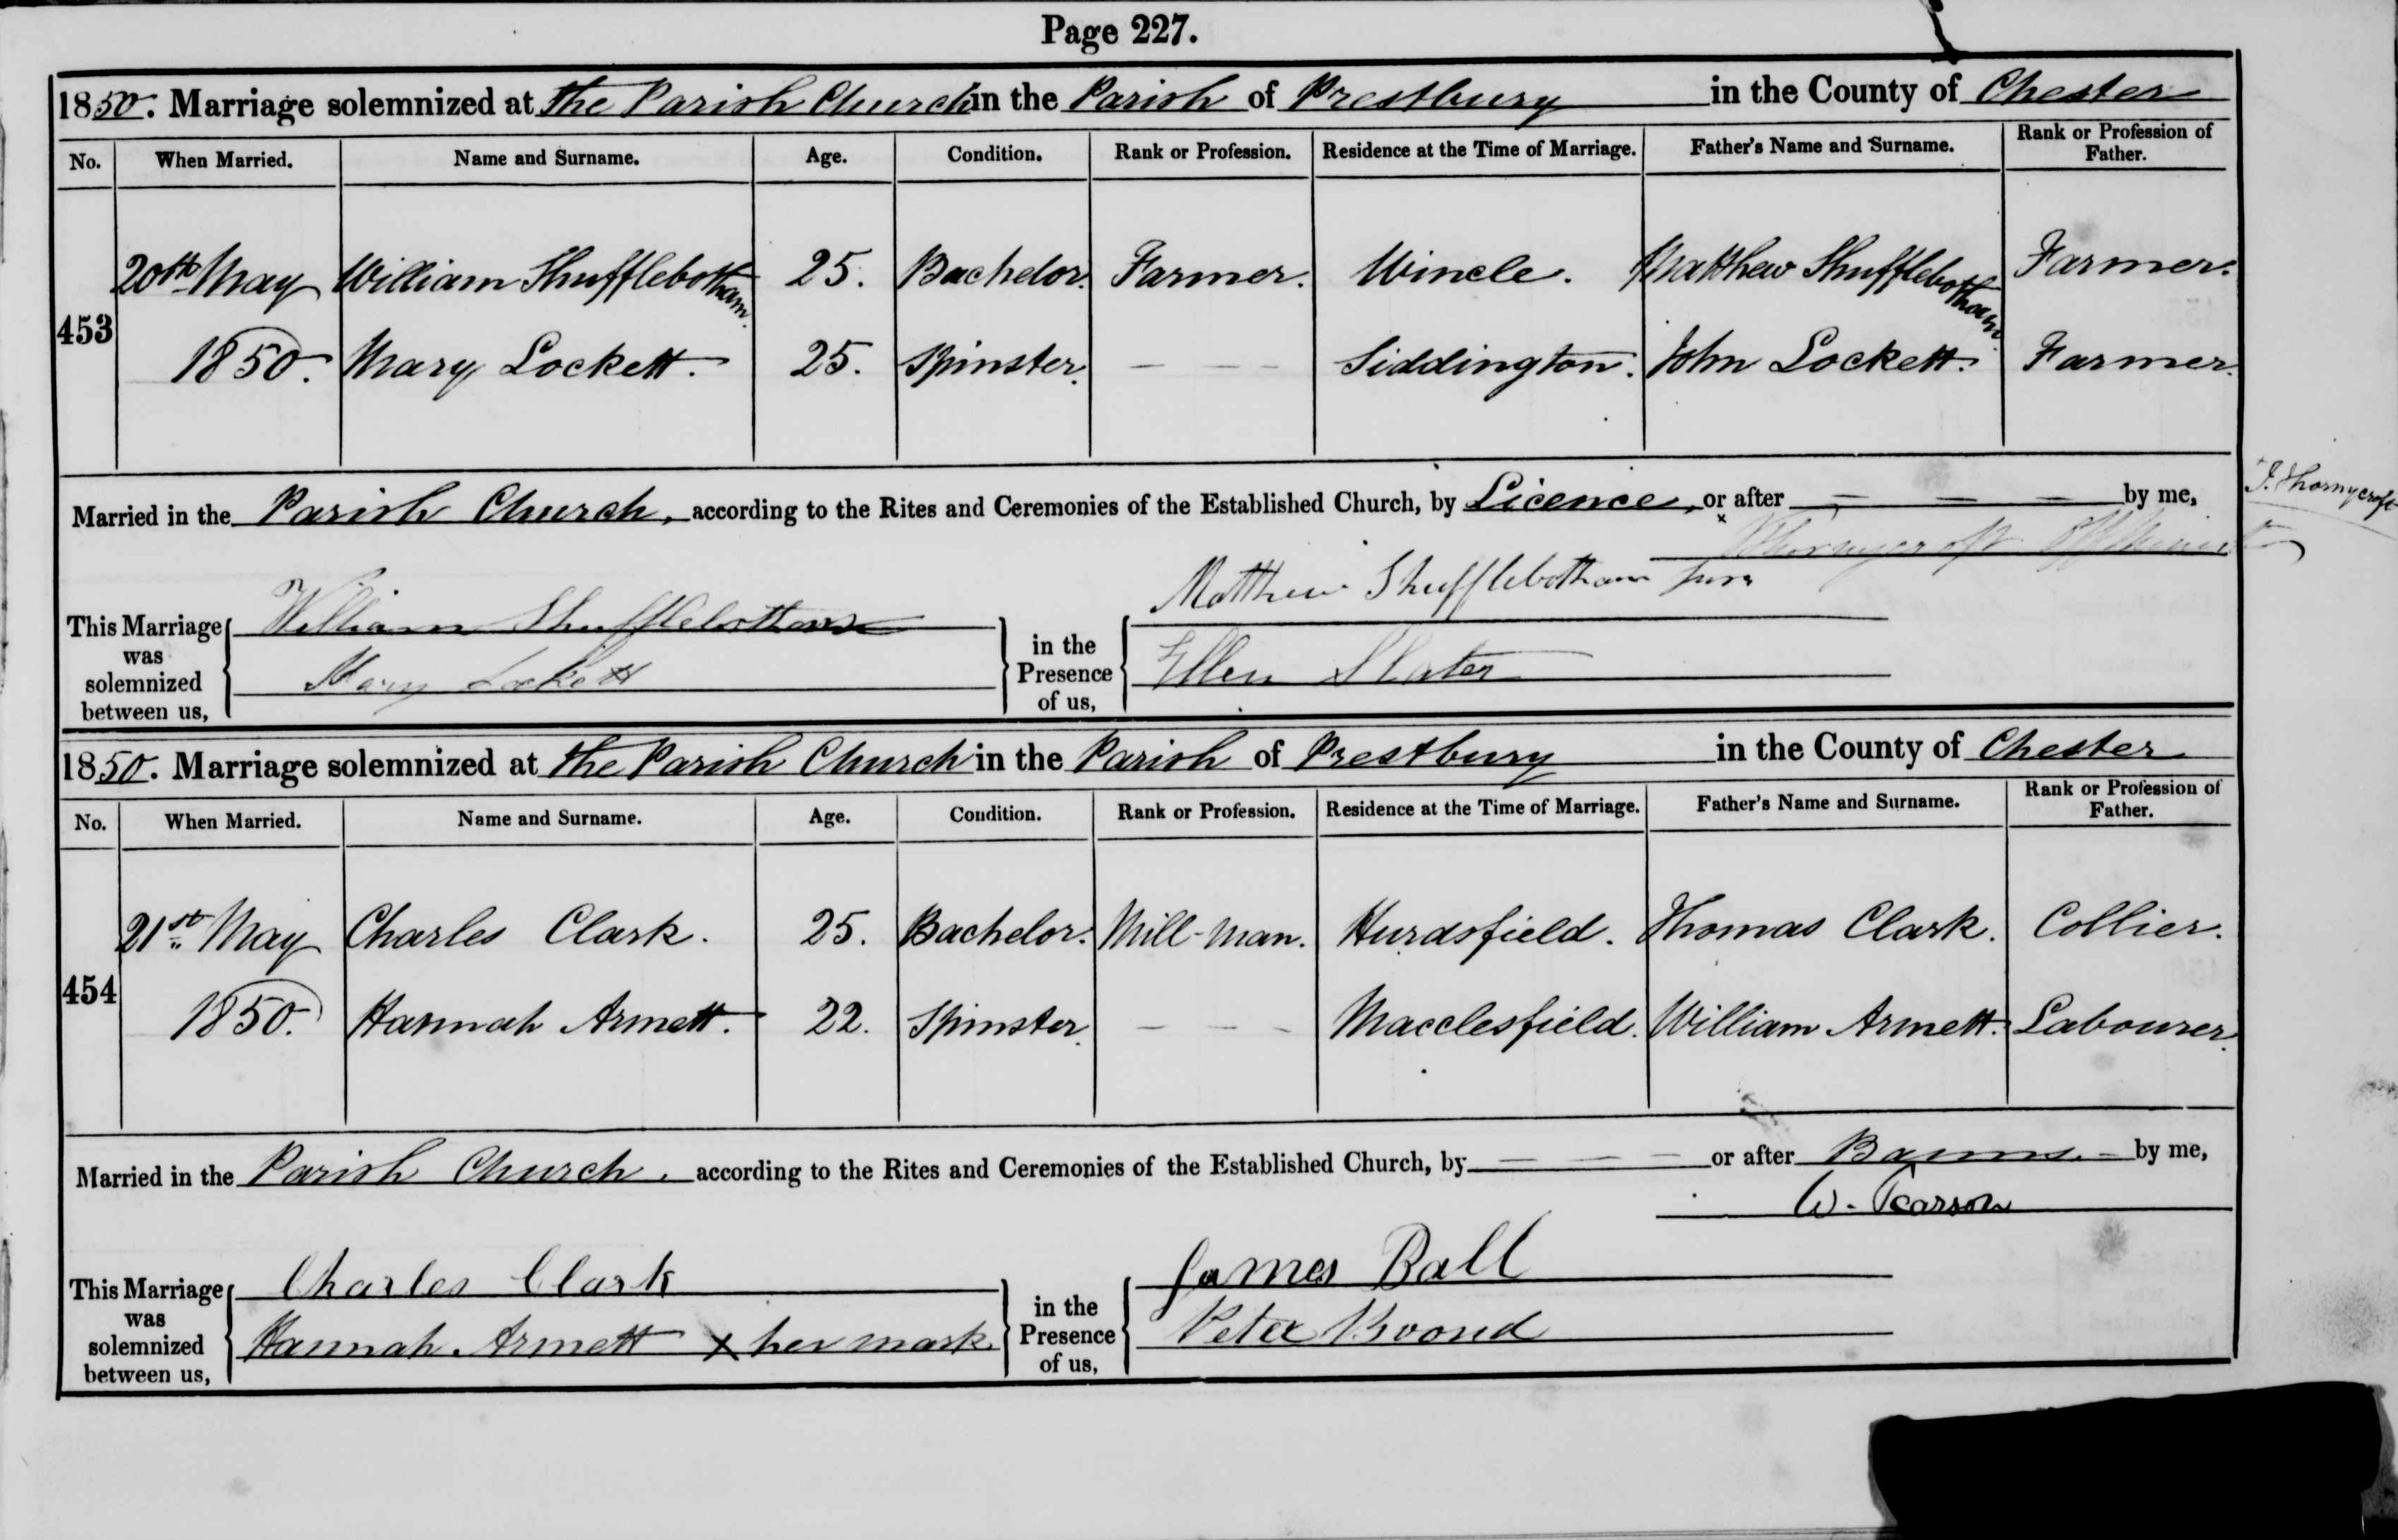 Page 227.
1850. Marriage solemnized at the Parish Church in the Parish of Prestbury in the County of Chester
No. When Married. Name and Surname. Age. Condition. Rank or Profession. Residence at the Time of Marriage. Father's Name and Surname. Rank or Profession of Father.
20th May William Shufflebotham. 25. Bachelor. Farmer. Wincle. Matthew Shufflebotham. Farmer.
453
1850. Mary Lockett. 25. Spinster. — — — Siddington. John Lockett. Farmer.
Married in the Parish Church, according to the Rites and Ceremonies of the Established Church, by Licence, or after — — — by me, J. Thornycroft
Thornycroft
This Marriage was solemnized between us,
William Shufflebotham
Mary Lockett
in the Presence of us,
Matthew Shufflebotham Junr
Ellen Slater
1850. Marriage solemnized at the Parish Church in the Parish of Prestbury in the County of Chester
No. When Married. Name and Surname. Age. Condition. Rank or Profession. Residence at the Time of Marriage. Father's Name and Surname. Rank or Profession of Father.
21st May Charles Clark. 25. Bachelor. Mill-Man. Hurdsfield. Thomas Clark. Collier.
454
1850. Hannah Armett. 22. Spinster. — — — Macclesfield. William Armett. Labourer.
Married in the Parish Church, according to the Rites and Ceremonies of the Established Church, by — — — or after Banns. — by me,
W. Pearson
This Marriage was solemnized between us,
Charles Clark
Hannah Armett x her mark.
in the Presence of us,
James Ball
Peter Boond